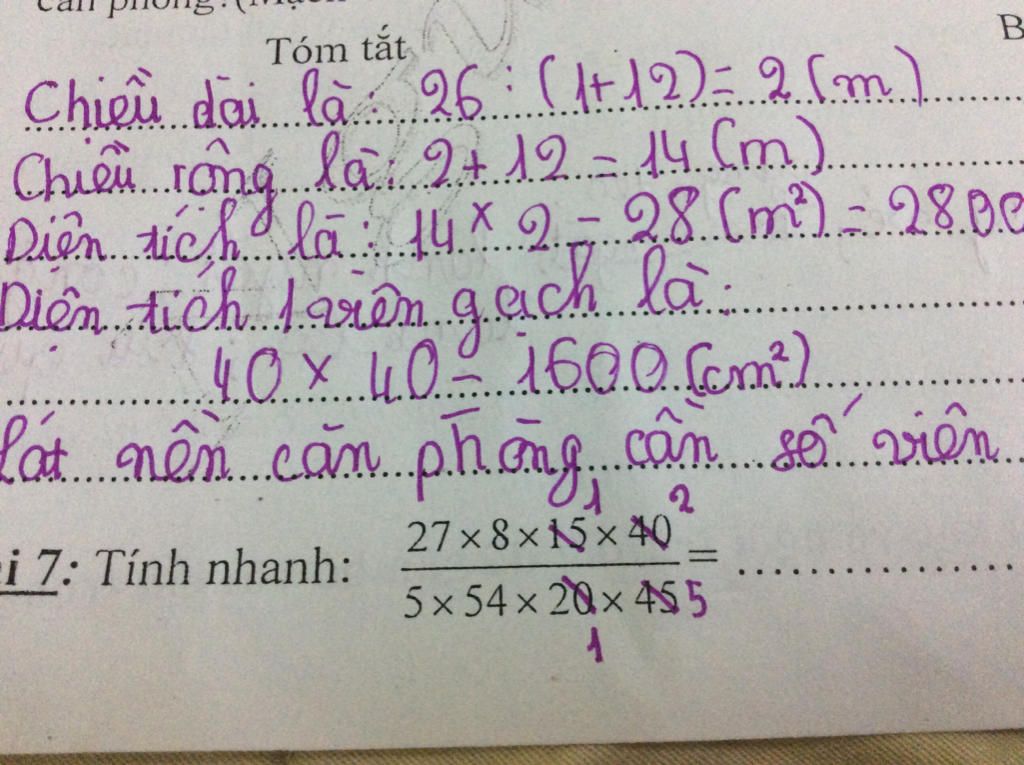 căn phòng?(Mạch
Tóm tắt B
Chiều dài là: 26 : (1+12) = 2 (m)
Chiều rộng là: 2 + 12 = 14 (m)
Diện tích là: 14 x 2 = 28 (m²) = 2800
Diện tích 1 viên gạch là:
40 x 40 = 1600 (cm²)
lát nền căn phòng cần số viên
1 2
i 7: Tính nhanh: 27 × 8 × 15 × 40 =
5 × 54 × 20 × 45 5
1